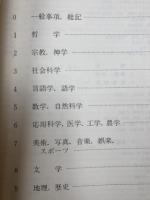 0 一般事項，総記
1 哲　学
2 宗教，神学
3 社会科学
4 言語学，語学
5 数学，自然科学
6 応用科学，医学，工学，農学
7 美術，写真，音楽，娯楽，
スポーツ
8 文　学
9 地理，歴史